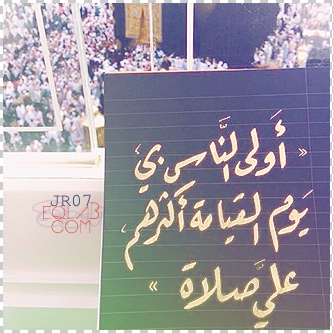 « أَولى النَّاس بي
يَوم القيامة أكثرهم
عليَّ صلاة »
JR07
EQLA3
COM